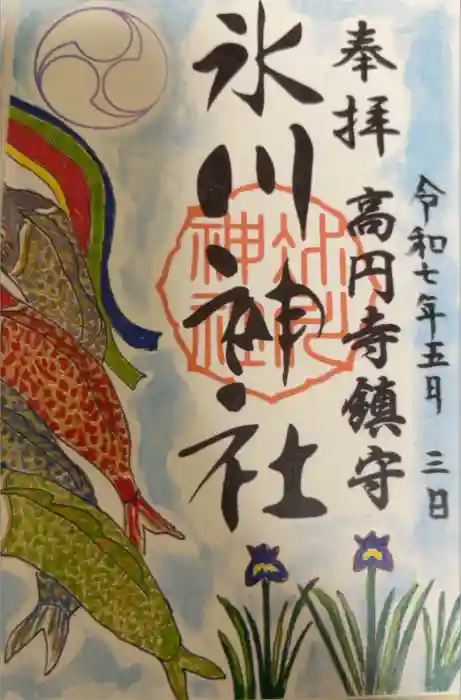 令和七年五月 三日
奉拝 高円寺鎮守
氷川神社
氷川神社